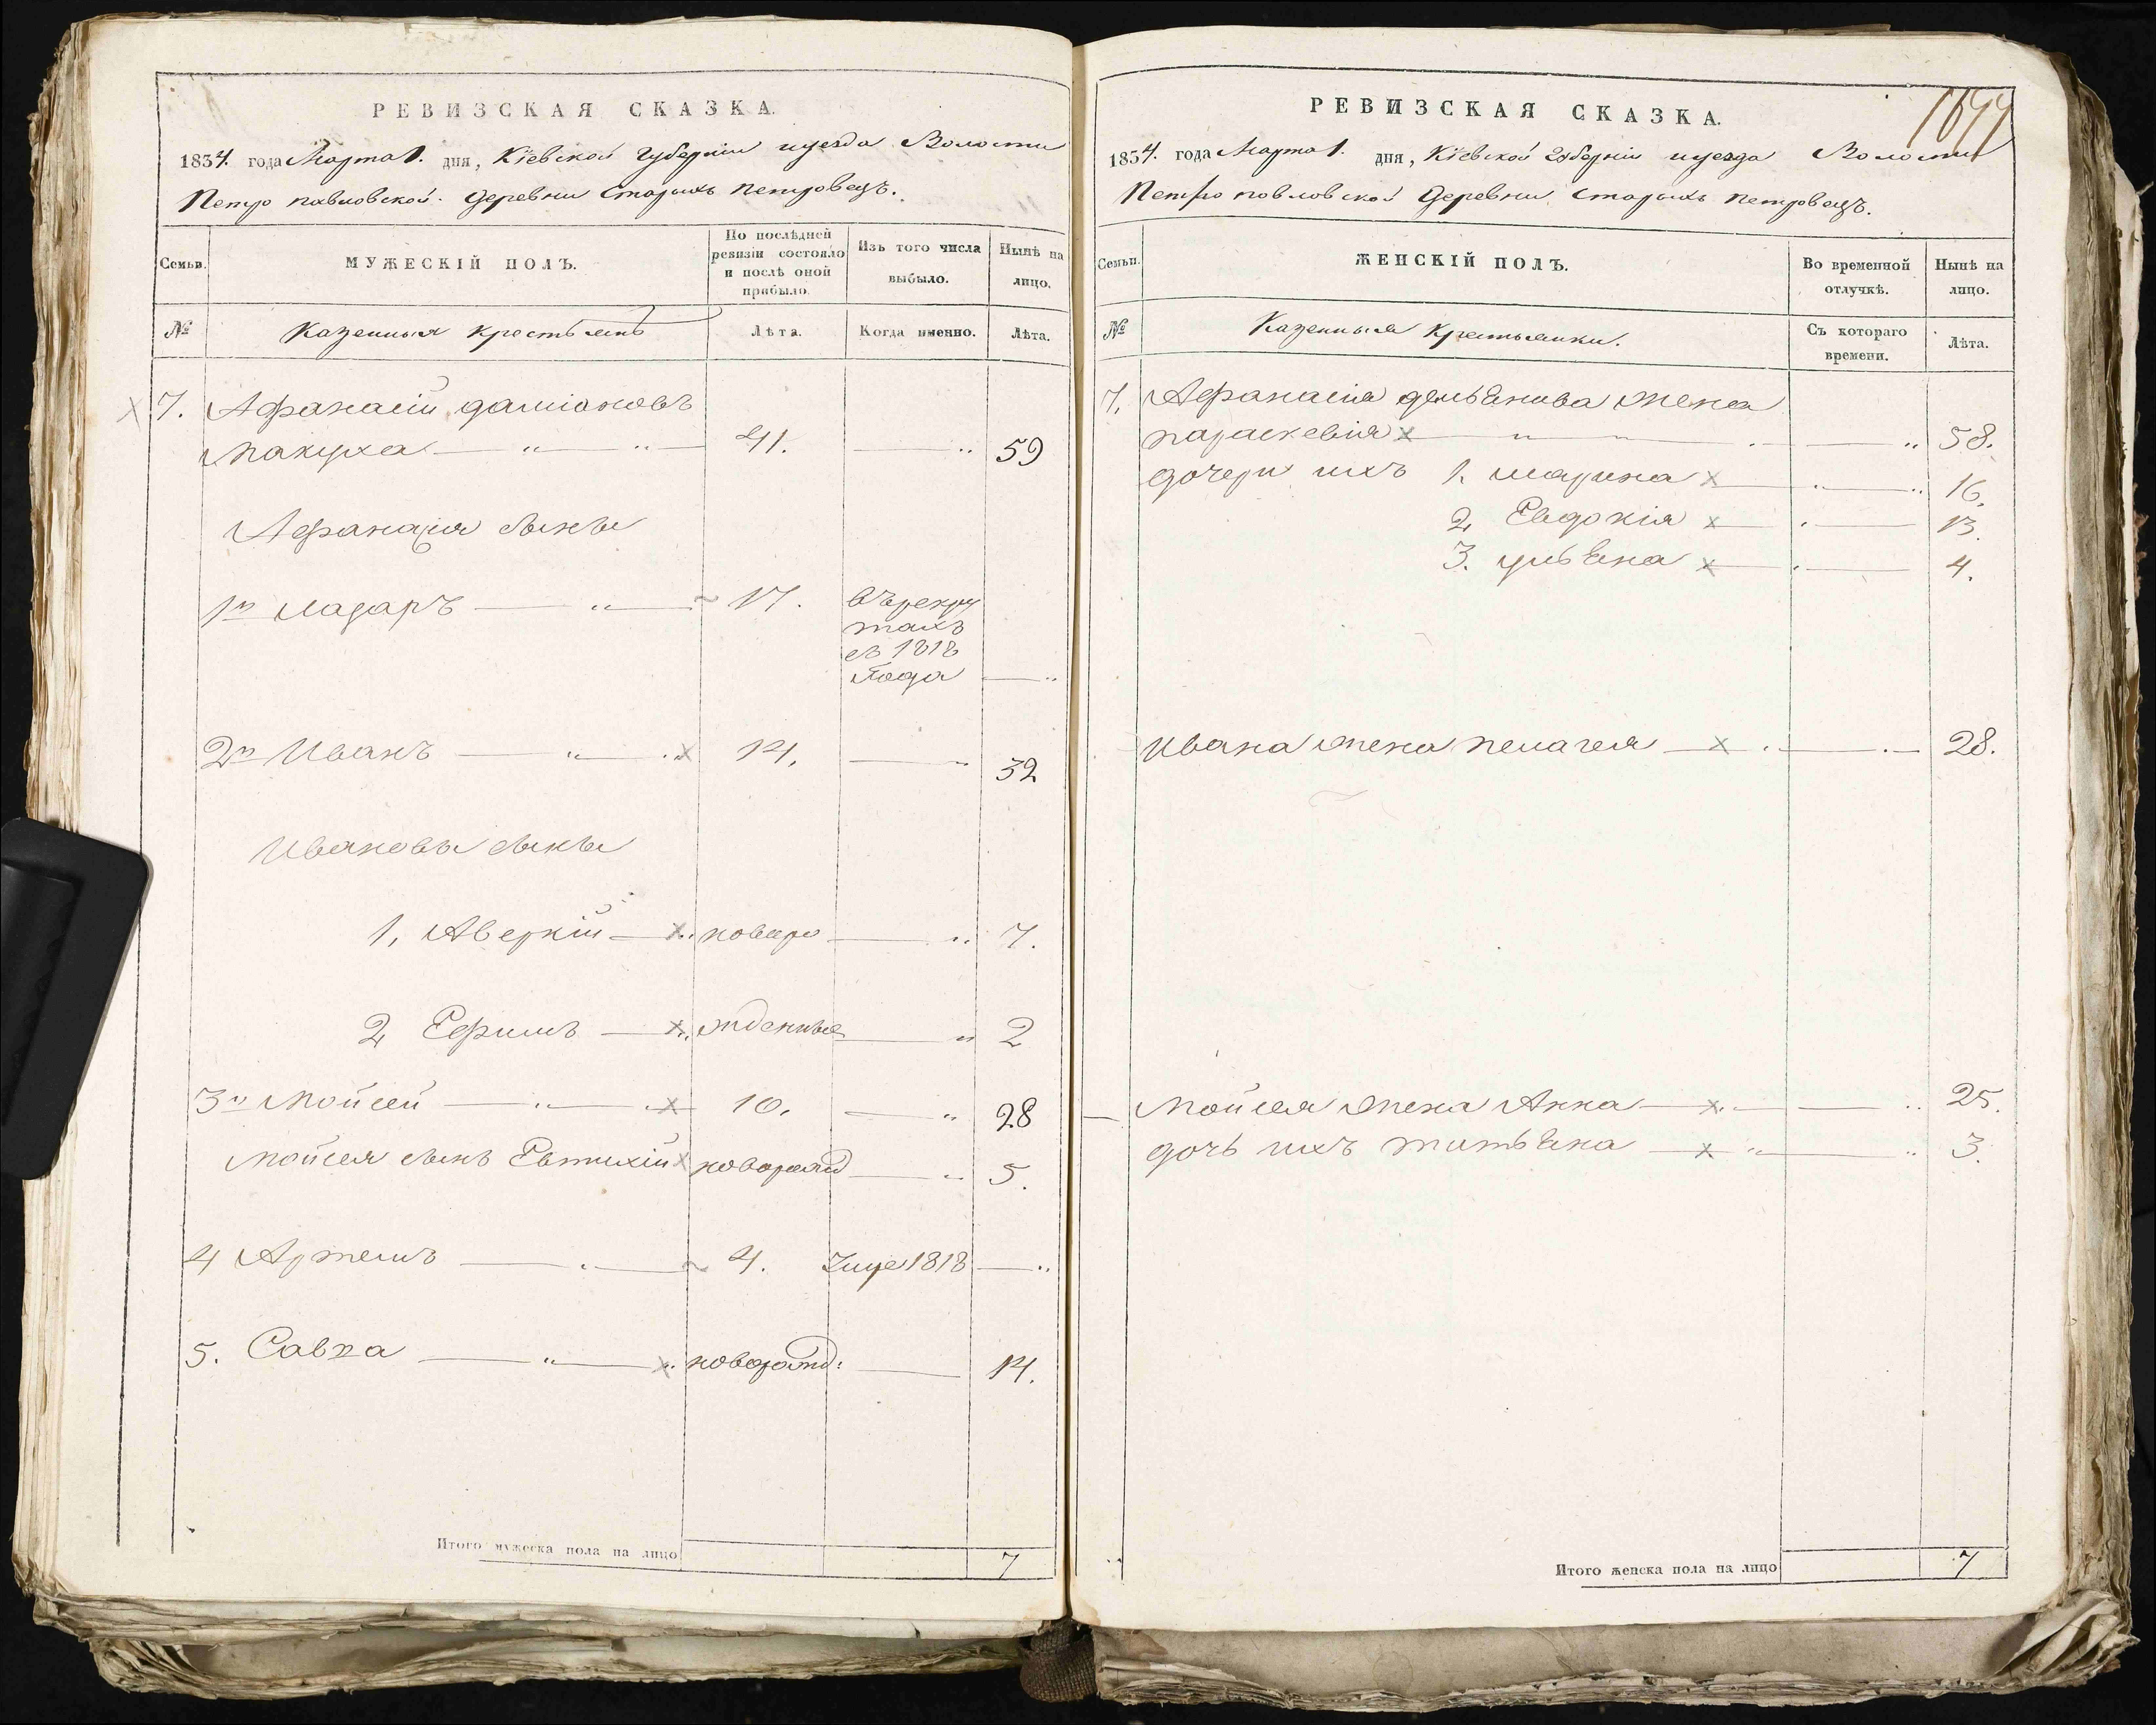 РЕВИЗСКАЯ СКАЗКА.
1834. года Марта 1. дня, Кіевской Губерніи уезда Волости
Петро павловской. Деревни Старыхъ петровецъ.
Семьи.
МУЖЕСКІЙ ПОЛЪ.
По послѣдней
ревизіи состояло
и послѣ оной
прибыло.
Изъ того числа
выбыло.
Нынѣ на
лицо.
№
Казенныя крестьянъ
Лѣта.
Когда именно.
Лѣта.
7. Афанасій даміоновъ
макуха 41. 59
Афанасія сыны
1й лазаръ 17. въ рекру
тахъ
съ 1818
года
2й Иванъ 14. 32
Ивановы сыны
1, Аверкій новоро 7.
2, Ефимъ жденные 2
3й Мойсей 10. 28
Мойсея сынъ Евтихій новорожд 5.
4 Артемъ 4. 1818
5. Савка новорожд: 14.
Итого мужеска пола на лицо 7
1699
РЕВИЗСКАЯ СКАЗКА.
1834. года Марта 1. дня, Кіевской Губерніи уезда Волости
Петро повловской Деревни Старыхъ петровецъ.
Семьи.
ЖЕНСКІЙ ПОЛЪ.
Во временной
отлучкѣ.
Нынѣ на
лицо.
№
Казенныя Крестьянки.
Съ котораго
времени.
Лѣта.
7. Афанасия демьянова жена
параскевія 58.
дочери ихъ 1. марина 16.
2, Евдокія 13.
3. ульяна 4.
Ивана жена пелагея 28.
Мойсея жена Анна 25.
дочь ихъ татьяна 3.
Итого женска пола на лицо 7